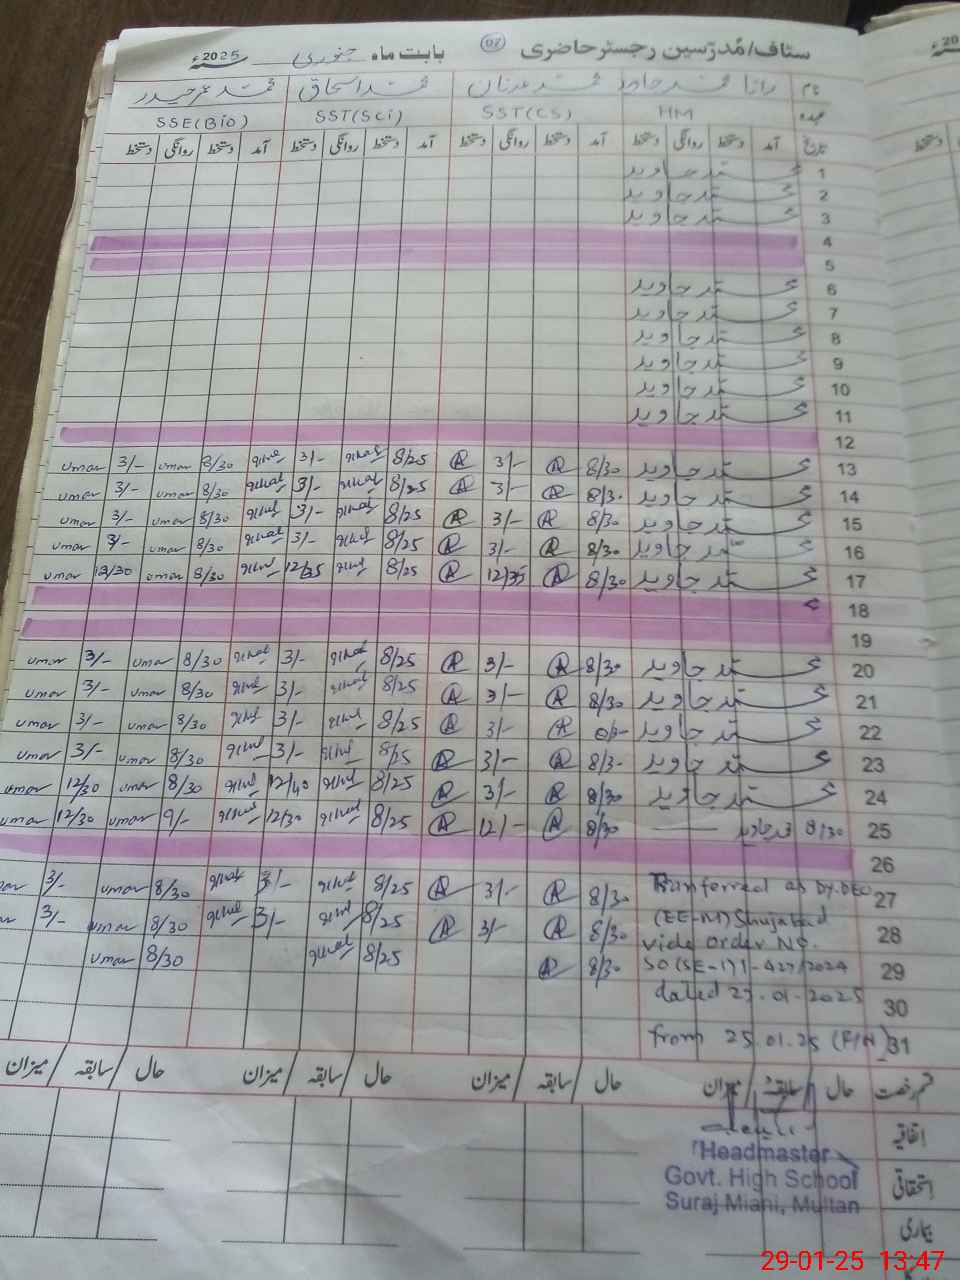 سٹاف/مُدرّسین رجسٹر حاضری 02 بابت ماہ جنوری 2025ء
نام رانا محمد جاوید محمد عدنان محمد اسحاق محمد عمر حیدر
عہدہ HM SST(CS) SST(Sci) SSE(Bio)
تاریخ آمد دستخط روانگی دستخط آمد دستخط روانگی دستخط آمد دستخط روانگی دستخط آمد دستخط روانگی دستخط
1 محمد جاوید
2 محمد جاوید
3 محمد جاوید
4
5
6 محمد جاوید
7 محمد جاوید
8 محمد جاوید
9 محمد جاوید
10 محمد جاوید
11 محمد جاوید
12
13 محمد جاوید 8/30 A 3/- A 8/25 3/- 8/30 umar 3/- umar
14 محمد جاوید 8/30 A 3/- A 8/25 3/- 8/30 umar 3/- umar
15 محمد جاوید 8/30 A 3/- A 8/25 3/- 8/30 umar 3/- umar
16 محمد جاوید 8/30 A 3/- A 8/25 3/- 8/30 umar 3/- umar
17 محمد جاوید 8/30 A 12/35 A 8/25 12/35 8/30 umar 12/30 umar
18
19
20 محمد جاوید 8/30 A 3/- A 8/25 3/- 8/30 umar 3/- umar
21 محمد جاوید 8/30 A 3/- A 8/25 3/- 8/30 umar 3/- umar
22 محمد جاوید A 3/- A 8/25 3/- 8/30 umar 3/- umar
23 محمد جاوید 8/30 A 3/- A 8/25 3/- 8/30 umar 3/- umar
24 محمد جاوید 8/30 A 3/- A 8/25 12/40 8/30 umar 12/30 umar
25 8/30 محمد جاوید 8/30 A 12/- A 8/25 12/30 9/- umar 12/30 umar
26
27 Tranferred as Dy.DEO 8/30 A 3/- A 8/25 3/- 8/30 umar 3/- umar
28 (EE-M) Shujabad 8/30 A 3/- A 8/25 3/- 8/30 umar 3/-
vide order No.
29 SO (SE-IV) 1-427/2024 8/30 A 8/25 8/30 umar
30 dated 27.01.2025
31 from 25.01.25 (F/N)
قسم رخصت حال سابقہ میزان حال سابقہ میزان حال سابقہ میزان حال سابقہ میزان
اتفاقیہ
استحقاقی
بیماری
Headmaster
Govt. High School
Suraj Miani, Multan
29-01-25 13:47